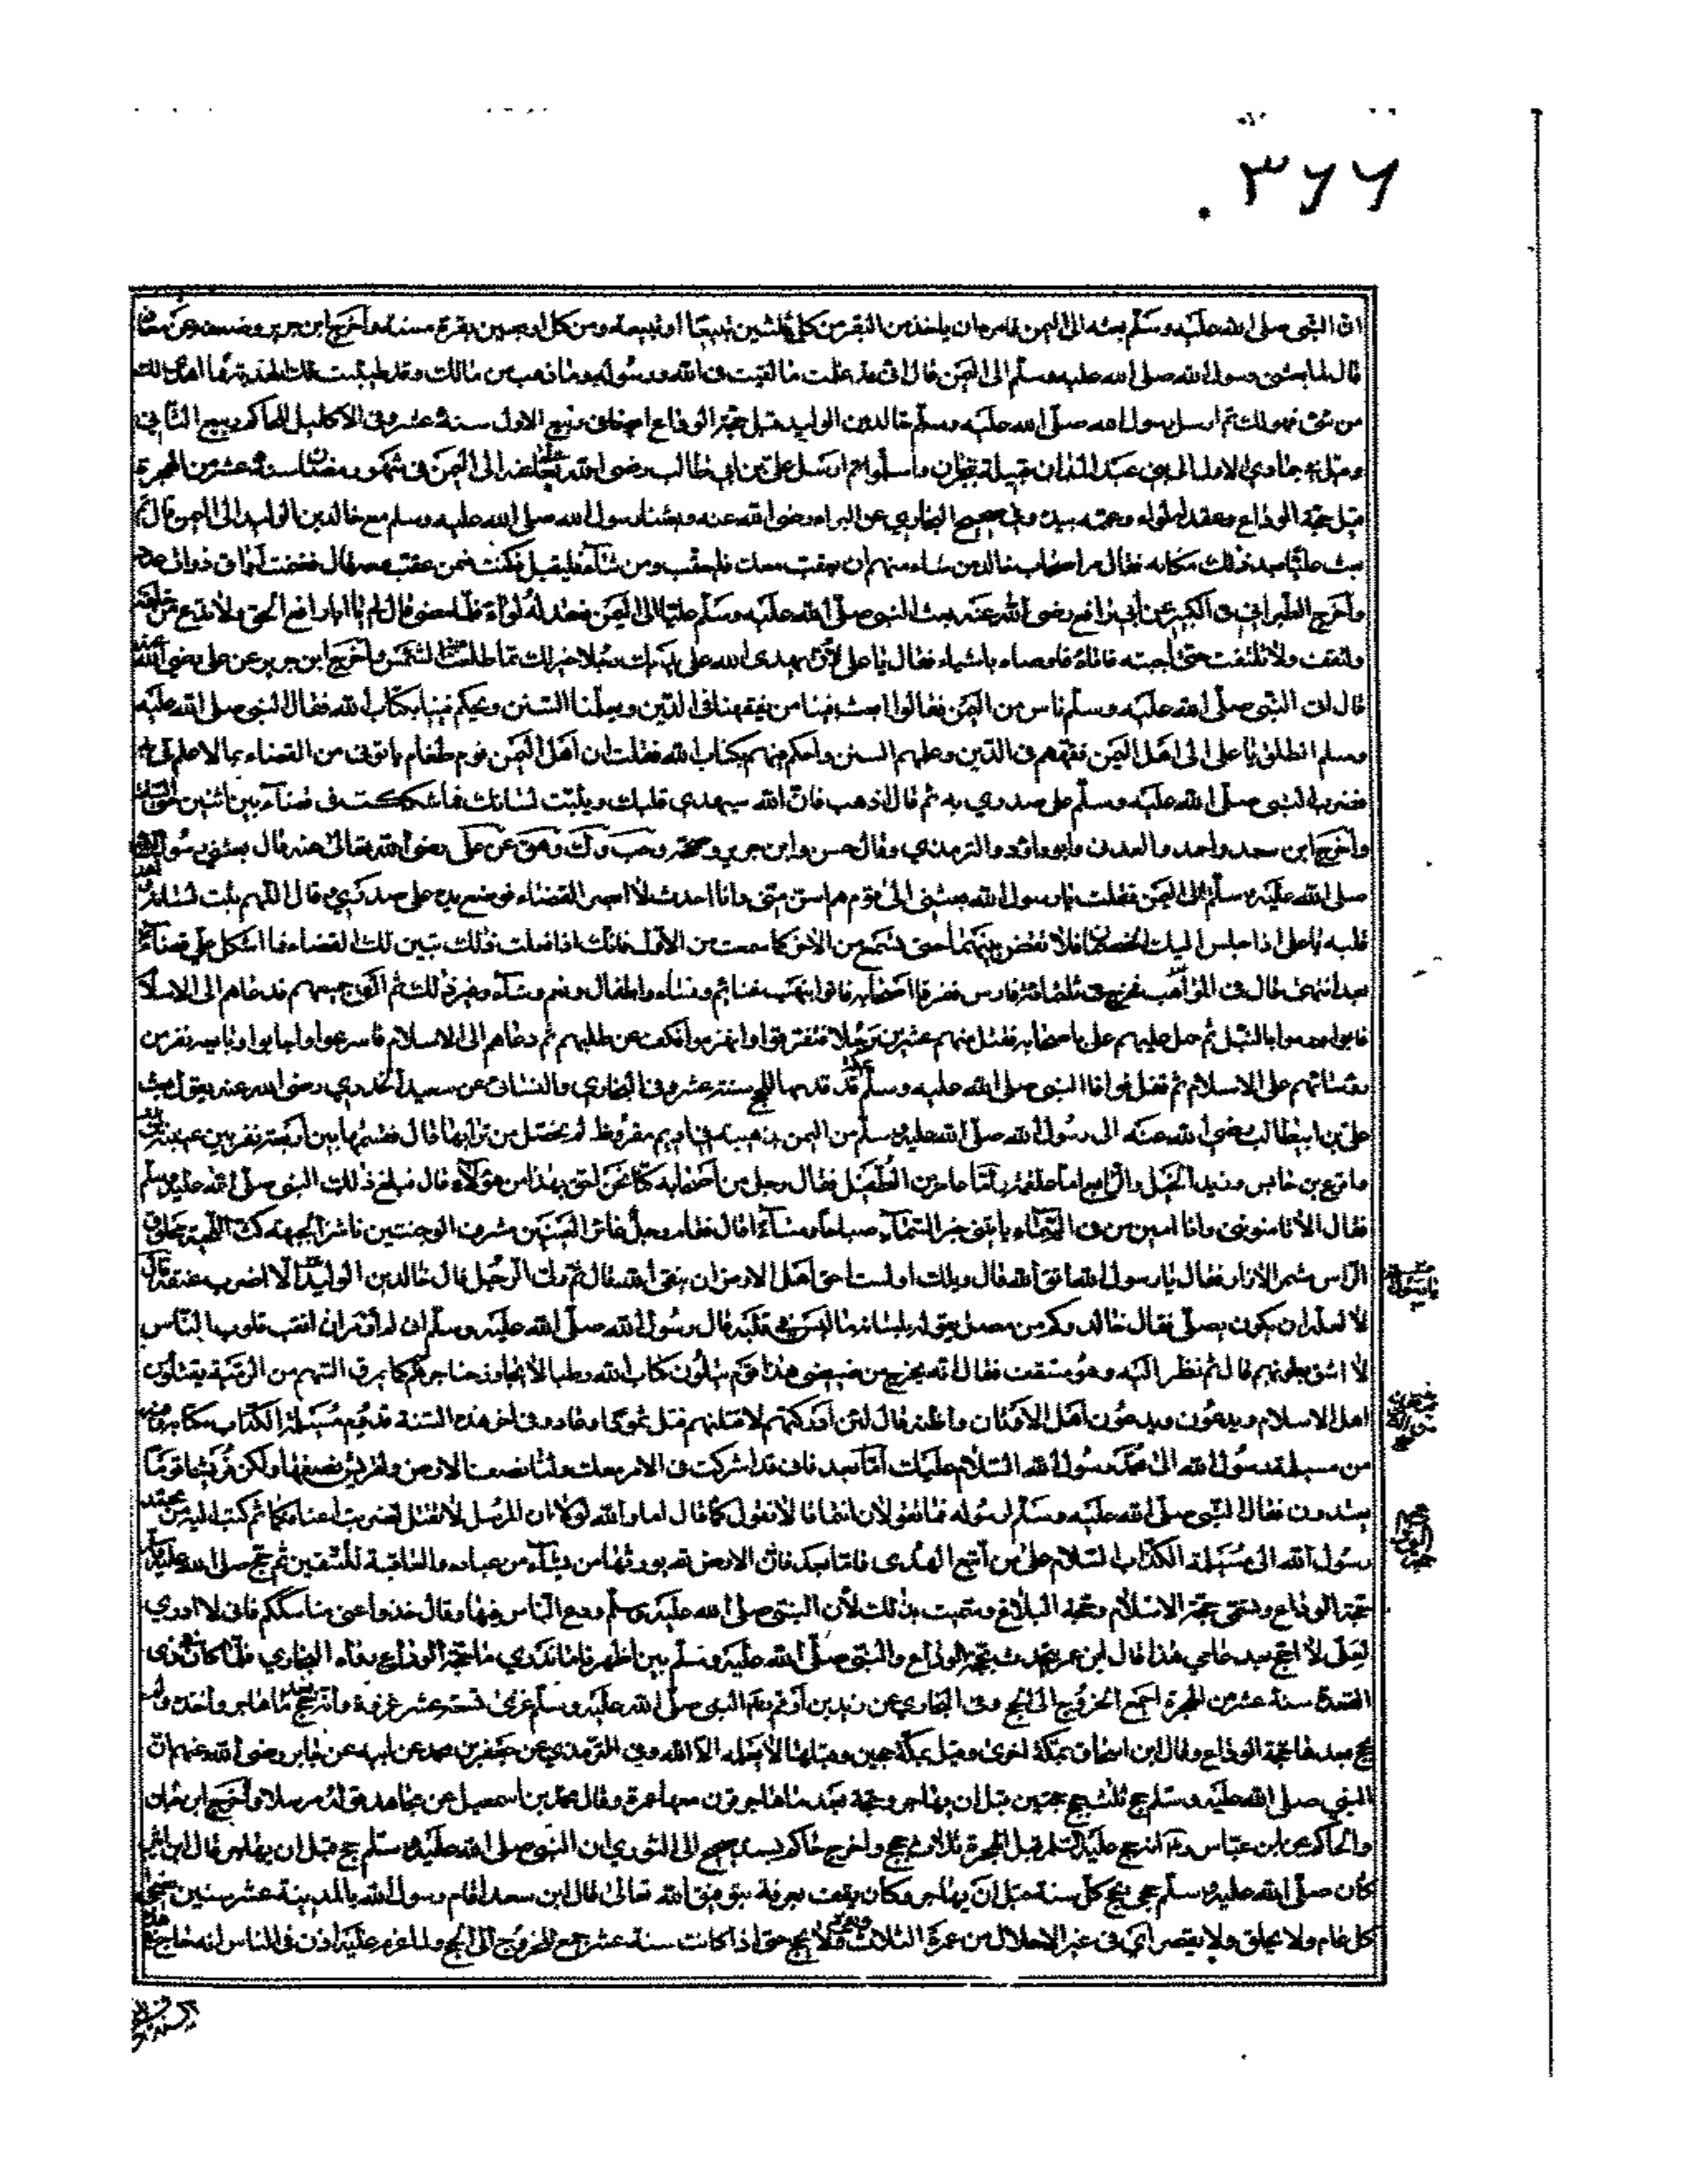 ٣٦٦
ان النبى صلى الله عليه وسلم بعثه الى اليمن فامره ان ياخذ من البقر من كل ثلثين تبيعا او تبيعة ومن كل اربعين بقرة مسنة واخرج ابن جرير وضعفه عن معاذ
قال لما بعثنى رسول الله صلى الله عليه وسلم الى اليمن قال انى قد علمت ما لقيت فى الله ورسوله وما ذهب من مالك وقد طيبت لك الهدية فما اهدى لك
من شئ فهو لك ثم ارسل رسول الله صلى الله عليه وسلم خالد بن الوليد قبل حجة الوداع ايضا فى ربيع الاول سنة عشر وفى الاكليل للحاكم ربيع الثانى
وقيل فى جمادى الاولى الى بنى عبد المدان قبيلة بنجران واسلموا ثم ارسل على بن ابى طالب رضى الله تعالى عنه الى اليمن فى شهر رمضان سنة عشر من الهجرة
قبل حجة الوداع وعقد له لواء وعممه بيده وفى صحيح البخاري عن البراء رضى الله عنه بعثنا رسول الله صلى الله عليه وسلم مع خالد بن الوليد الى اليمن قال ثم
بعث عليا بعد ذلك مكانه فقال مر اصحاب خالد من شاء منهم ان يعقب معك فليعقب ومن شاء فليقبل فكنت فمن عقب معه قال فغنمت اواقى ذوات عدد
واخرج الطبرانى فى الكبير عن ابى رافع رضى الله عنه بعث النبى صلى الله عليه وسلم عليا الى اليمن فعقد له لواء فلما مضى قال يا ابا رافع الحق ولا تدعه من خلفه
وليقف ولا تلتفت حتى اجيئه فاتاه فاوصاه باشياء فقال يا على لان يهدى الله على يديك رجلا خير لك مما طلعت عليه الشمس واخرج ابن جرير عن على رضى الله عنه
قال اتى النبى صلى الله عليه وسلم ناس من اليمن فقالوا ابعث فينا من يفقهنا فى الدين ويعلمنا السنن ويحكم فينا بكتاب الله فقال النبى صلى الله عليه
وسلم انطلق يا على الى اهل اليمن ففقههم فى الدين وعلمهم السنن واحكم فيهم بكتاب الله فقلت ان اهل اليمن قوم طغام ياتونى من القضاء بما لا علم لى به
فضرب النبى صلى الله عليه وسلم على صدري ثم قال اذهب فان الله سيهدي قلبك ويثبت لسانك فما شككت فى قضاء بين اثنين حتى الساعة
واخرج ابن سعد واحمد والعدنى وابو داؤد والترمذي وقال حسن وابن جرير وصححه وحب وك وهق عن على رضى الله تعالى عنه قال بعثنى رسول الله
صلى الله عليه وسلم الى اليمن فقلت يا رسول الله تبعثنى الى قوم هم اسن منى وانا حدث لا ابصر القضاء فوضع يده على صدري وقال اللهم ثبت لسانه واهد
قلبه يا على اذا جلس اليك الخصمان فلا تقض بينهما حتى تسمع من الاخر كما سمعت من الاول فانك اذا فعلت ذلك تبين لك القضاء فما اشكل على قضاء
بعد انتهى قال فى المواهب فخرج فى ثلثمائة فارس ففرق اصحابه فاتوا بنهب غنائم ونساء واطفال ونعم وشاء وغير ذلك ثم لقى جمعهم فدعاهم الى الاسلام
فابوا ورموا بالنبل ثم حمل عليهم على باصحابه فقتل منهم عشرين رجلا فتفرقوا وانهزموا فكف عن طلبهم ثم دعاهم الى الاسلام فاسرعوا واجابوا وبايعه نفر من
رؤسائهم على الاسلام ثم قفل فوافى النبى صلى الله عليه وسلم بمكة قد قدمها للحج سنة عشر وفى البخاري والنسائى عن ابى سعيد الخدري رضى الله عنه يقول بعث
على بن ابيطالب رضى الله عنه الى رسول الله صلى الله عليه وسلم من اليمن بذهيبة فى اديم مقروظ لم تحصل من ترابها قال فقسمها بين اربعة نفر بين عيينة بن بدر
واقرع بن حابس وزيد الخيل والرابع اما علقمة واما عامر بن الطفيل فقال رجل من اصحابه كنا نحن احق بهذا من هؤلاء قال فبلغ ذلك النبى صلى الله عليه وسلم
فقال الا تامنونى وانا امين من فى السماء ياتينى خبر السماء صباحا ومساء قال فقام رجل غائر العينين مشرف الوجنتين ناشز الجبهة كث اللحية محلوق
الراس مشمر الازار فقال يا رسول الله اتق الله قال ويلك اولست احق اهل الارض ان يتقى الله قال ثم ولى الرجل قال خالد بن الوليد الا اضرب عنقه قال
لا لعله ان يكون يصلى فقال خالد وكم من مصل يقول بلسانه ما ليس فى قلبه قال رسول الله صلى الله عليه وسلم انى لم اومر ان انقب قلوب الناس
لا اشق بطونهم قال ثم نظر اليه وهو مقف فقال انه يخرج من ضئضئ هذا قوم يتلون كتاب الله رطبا لا يجاوز حناجرهم كما يمرق السهم من الرمية يقتلون
اهل الاسلام ويدعون اهل الاوثان واظنه قال لئن ادركتهم لاقتلنهم قتل ثمود وعاد وفى اخر هذه السنة قدوم مسيلمة الكذاب مكاتبه
من مسيلمة رسول الله الى محمد رسول الله السلام عليك اما بعد فانى قد اشركت فى الامر معك ولنا نصف الارض ولقريش نصفها ولكن قريشا قوما
يعتدون فقال النبى صلى الله عليه وسلم لرسوله فما تقولان انتما قالا نقول كما قال اما والله لولا ان الرسل لا تقتل لضربت اعناقكما ثم كتب اليه من محمد
رسول الله الى مسيلمة الكذاب السلام على من اتبع الهدى فاما بعد فان الارض لله يورثها من يشاء من عباده والعاقبة للمتقين ثم حج صلى الله عليه وسلم
حجة الوداع وتسمى حجة الاسلام وحجة البلاغ وسميت بذلك لان النبى صلى الله عليه وسلم ودع الناس فيها وقال خذوا عنى مناسككم فانى لا ادري
لعلى لا احج بعد عامي هذا قال ابن عمر نتحدث بحجة الوداع والنبى صلى الله عليه وسلم بين اظهرنا ما ندري ما حجة الوداع رواه البخاري فلما كان ذى
القعدة سنة عشر من الهجرة اجمع الخروج الى الحج وفى البخاري عن زيد بن ارقم ان النبى صلى الله عليه وسلم غزى تسع عشر غزوة وانه حج بعد ما هاجر واحدة ولم
يحج بعدها حجة الوداع وقال ابن اسحاق بمكة اخرى وقيل بمكة حجتين وقبلها لا يعلمه الا الله وفى الترمذي عن جعفر بن محمد عن ابيه عن جابر رضى الله عنهم ان
النبى صلى الله عليه وسلم حج ثلث حجج حجتين قبل ان يهاجر وحجة بعد ما هاجر قرن معها عمرة وقال محمد بن اسمعيل عن مجاهد قوله مرسلا واخرج ابن حبان
والحاكم عن ابن عباس انه حج عليه السلم قبل الهجرة ثلاث حجج واخرج حاكم بسند صحيح الى الثوري ان النبى صلى الله عليه وسلم حج قبل ان يهاجر قال ابن اثير
كان صلى الله عليه وسلم يحج كل سنة قبل ان يهاجر وكان يقف بعرفة بتوفيق الله تعالى قال ابن سعد اقام رسول الله بالمدينة عشر سنين يضحى
كل عام ولا يحلق ولا يقصر اي فى غير الاحلال من عمرة الثلاث ولا يحج حتى اذا كانت سنة عشر جمع الخروج الى الحج ولما عزم عليه اذن فى الناس انه حاج